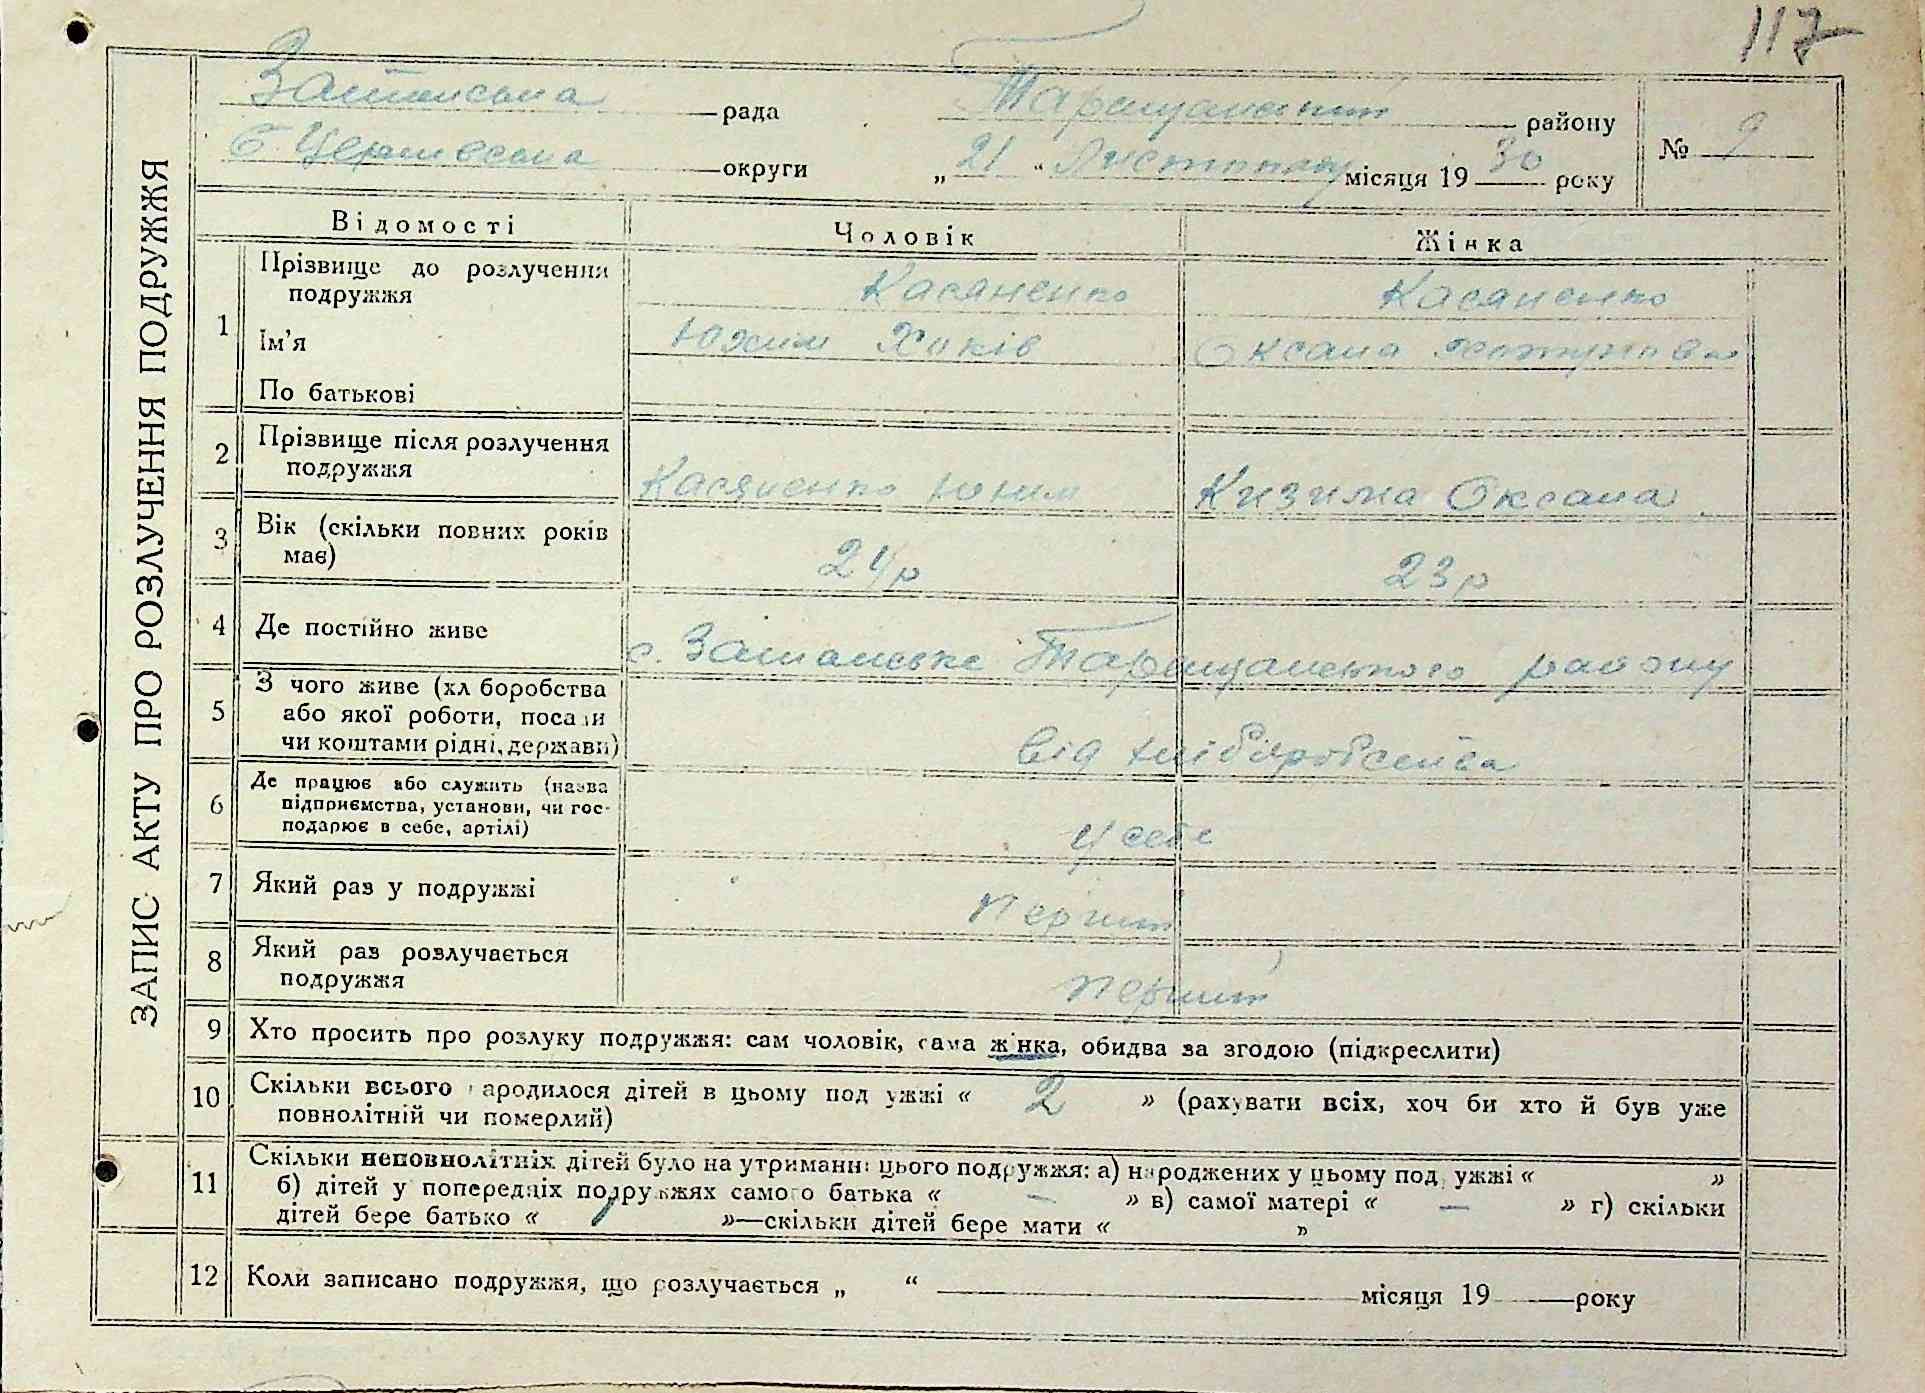 117
ЗАПИС АКТУ ПРО РОЗЛУЧЕННЯ ПОДРУЖЖЯ
рада Таращанський району
№ 9
Б. Церківська округи „ 21 “ Листопаду місяця 19 30 року
Відомості Чоловік Жінка
1 Прізвище до розлучення подружжя Касяненко Касяненко
Ім'я Юхим Оксана
По батькові
2 Прізвище після розлучення подружжя Касяненко Юхим Кизима Оксана
3 Вік (скільки повних років має) 24р 23р
4 Де постійно живе с. Таращанського району
5 З чого живе (хл боробства
або якої роботи, посади
чи коштами рідні, держави) від хліборобства
6 Де працює або служить (назва
підприємства, установи, чи гос-
подарює в себе, артілі) у себе
7 Який раз у подружжі перший
8 Який раз розлучається
подружжя перший
9 Хто просить про розлуку подружжя: сам чоловік, сама жінка, обидва за згодою (підкреслити)
10 Скільки всього народилося дітей в цьому под ужжі « 2 » (рахувати всіх, хоч би хто й був уже
повнолітній чи померлий)
11 Скільки неповнолітніх дітей було на утриманні цього подружжя: а) народжених у цьому под ужжі « »
б) дітей у попередніх подружжях самого батька « — » в) самої матері « — » г) скільки
дітей бере батько « »—скільки дітей бере мати « »
12 Коли записано подружжя, що розлучається „ “ місяця 19 року